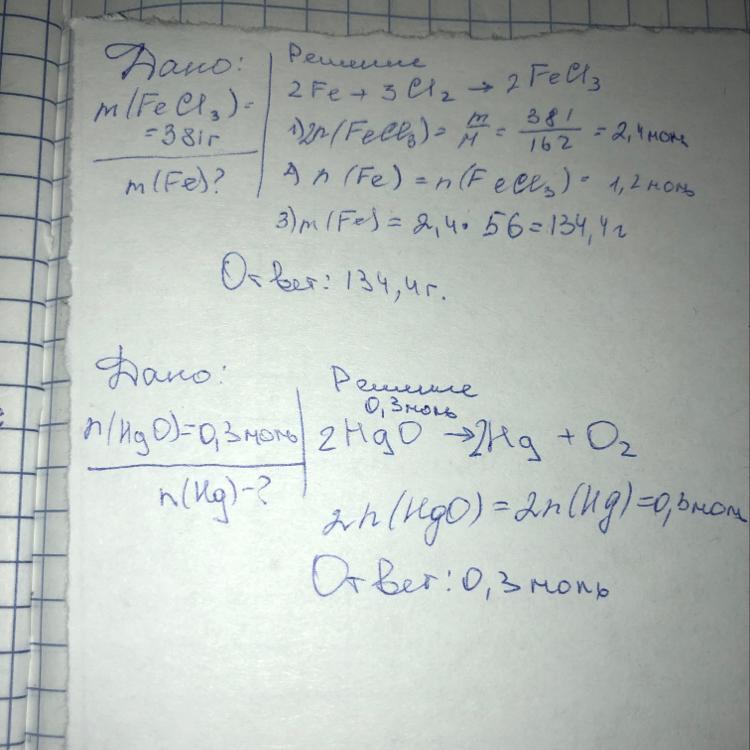 Дано:
m(FeCl₃)=
=381г
m(Fe)?
Решение
2Fe + 3Cl₂ → 2FeCl₃
1) 2n(FeCl₃) = m/M = 381/162 = 2,4 моль
2) n(Fe) = n(FeCl₃) = 1,2 моль
3) m(Fe) = 2,4 · 56 = 134,4 г
Ответ: 134,4 г.
Дано:
n(HgO)=0,3 моль
n(Hg)-?
Решение
0,3 моль
2HgO → 2Hg + O₂
2n(HgO) = 2n(Hg) = 0,3 моль
Ответ: 0,3 моль